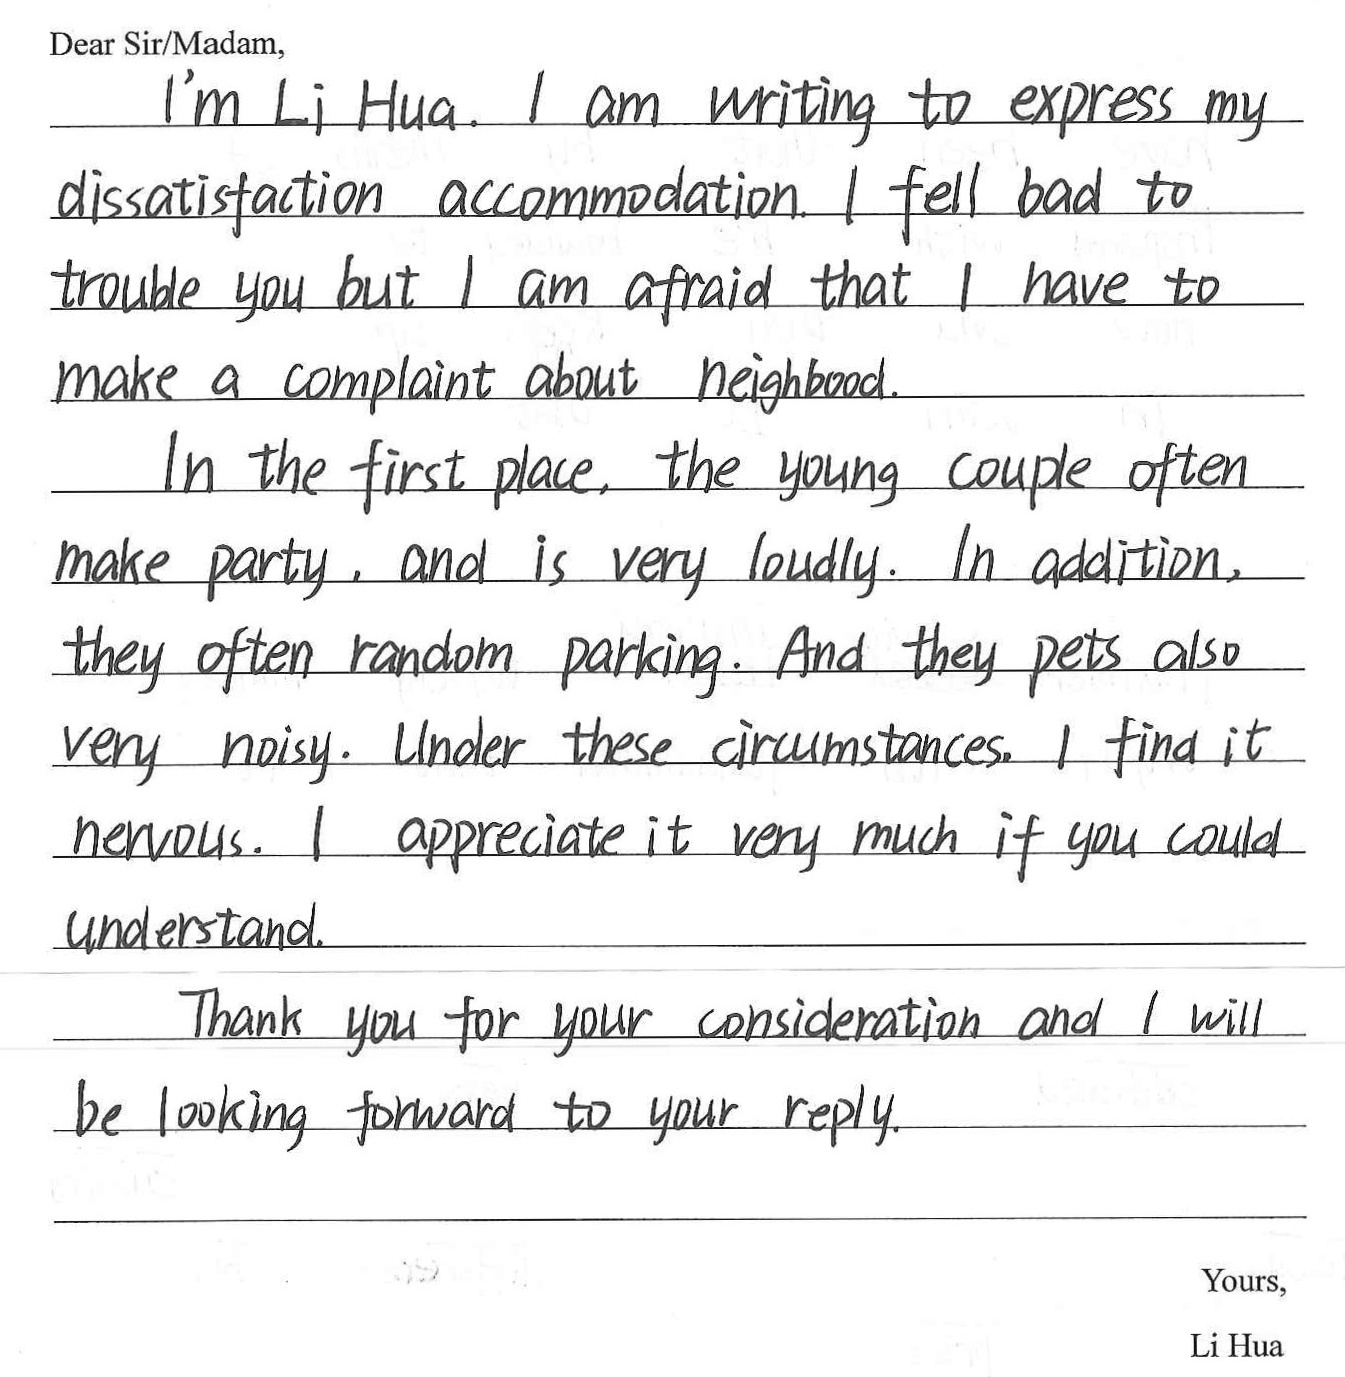 Dear Sir/Madam,
I'm Li Hua. I am writing to express my
dissatisfaction accommodation. I fell bad to
trouble you but I am afraid that I have to
make a complaint about neighbood.
In the first place, the young couple often
make party, and is very loudly. In addition,
they often random parking. And they pets also
very noisy. Under these circumstances. I find it
nervous. I appreciate it very much if you could
understand.
Thank you for your consideration and I will
be looking forward to your reply.
Yours,
Li Hua